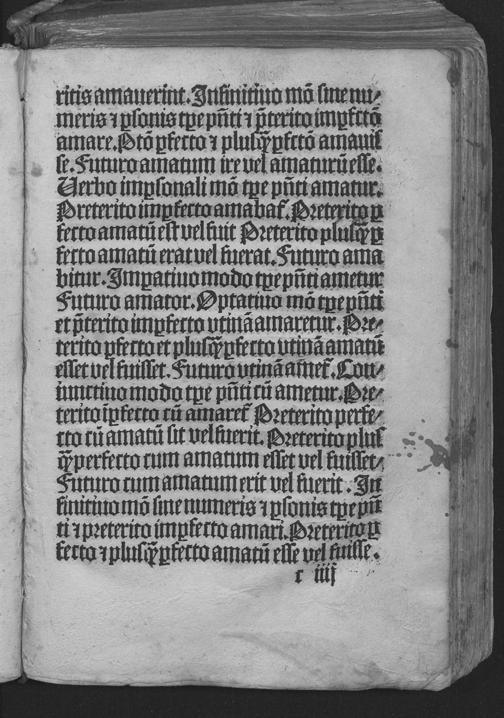 ritis amauerint. Infinitiuo mõ sine nu⸗
meris ⁊ ꝑsonis tꝑe pñti ⁊ p̃terito imꝑfctõ
amare. Ptõ ꝑfecto ⁊ plusq̃ꝑfctõ amauis
se. Futuro amatum ire vel amaturũ esse.
Uerbo imꝑsonali mõ tꝑe pñti amatur.
Preterito imꝑfecto amabat̃. Preterito ꝑ
fecto amatũ est vel fuit Preterito plusq̃ꝑ
fecto amatũ erat vel fuerat. Futuro ama
bitur. Imꝑatiuo modo tꝑe pñti ametur
Futuro amator. Optatiuo mõ tꝑe pñti
et p̃terito imꝑfecto vtinã amaretur. Pre⸗
terito ꝑfecto et plusq̃ꝑfecto vtinã amatũ
esset vel fuisset. Futuro vtinã amet̃. Con⸗
iunctiuo modo tꝑe pñti cũ ametur. Pre⸗
terito ĩꝑfecto cũ amaret̃ Preterito perfe⸗
cto cũ amatũ sit vel fuerit. Preterito plus
q̃ꝑerfecto cum amatum esset vel fuisset⸗
Futuro cum amatum erit vel fuerit. In
finitiuo mõ sine numeris ⁊ ꝑsonis tꝑe pñ
ti ⁊ preterito imꝑfecto amari. Preterito ꝑ
fecto ⁊ plusq̃ꝑfecto amatũ esse vel fuisse.
c iiij